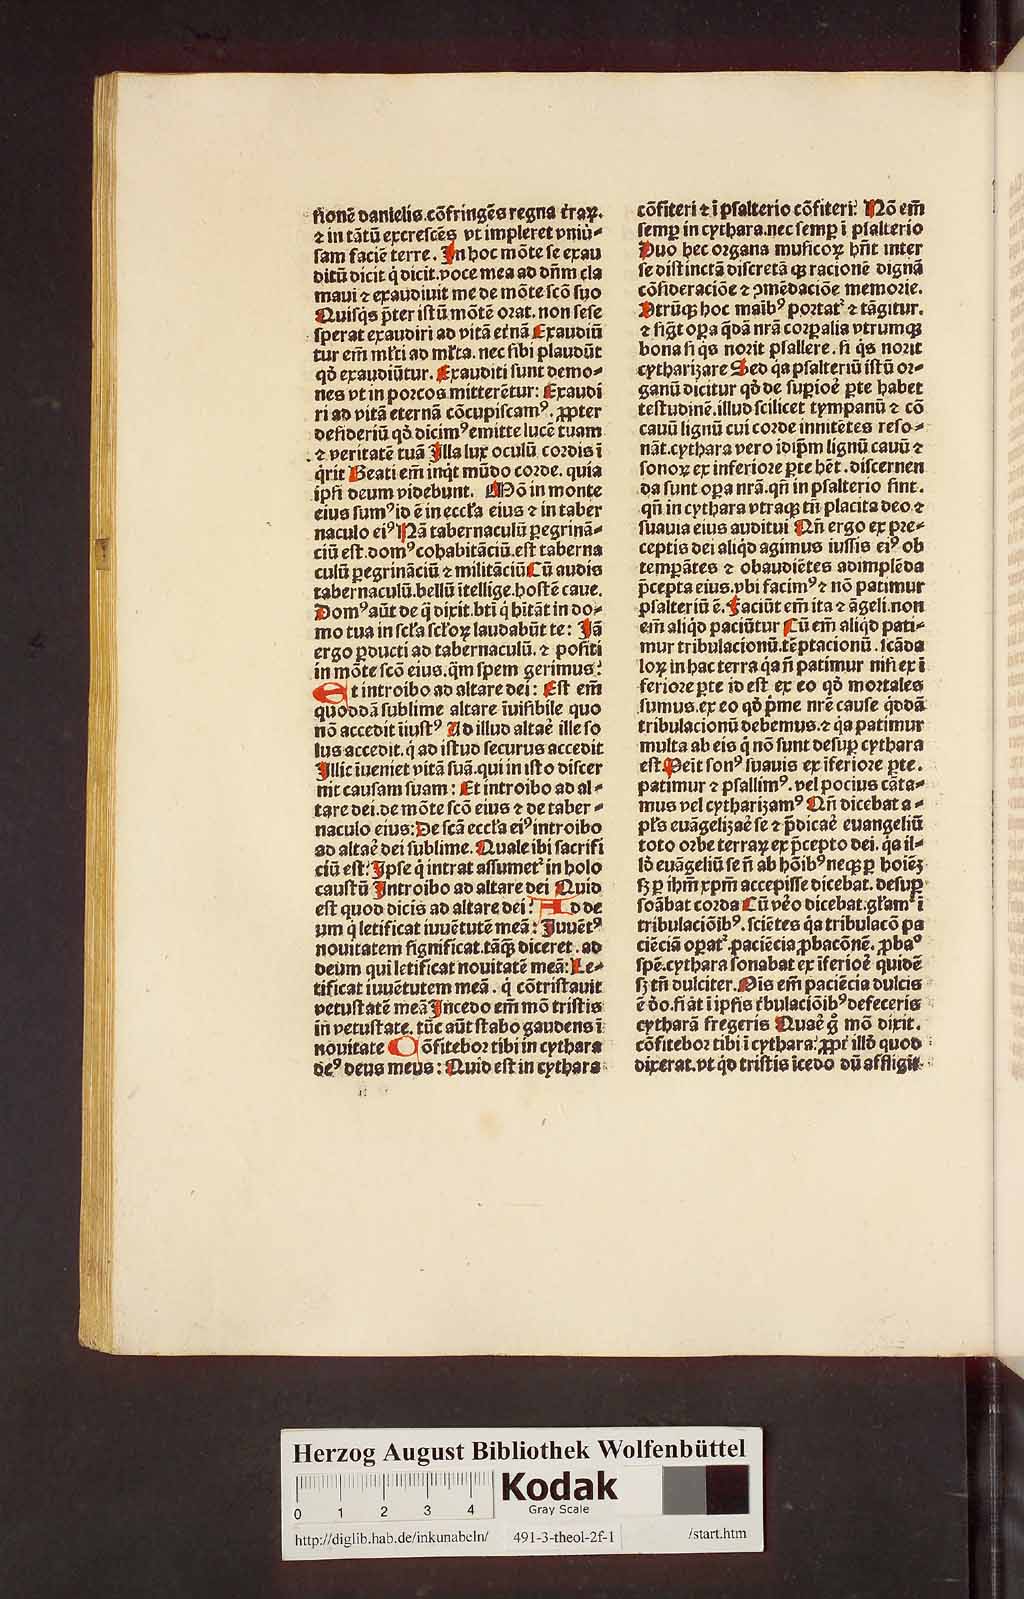 sionē danielis.cōfringēs regna t̄raꝝ.
⁊ in tātū excrescēs vt impleret vniū⸗
sam faciē terre. In hoc mōte se exau
ditū dicit q̇ dicit.voce mea ad dn̄m cla
maui ⁊ exaudiuit me de mōte scō suo
Quisq̇s p̄ter istū mōtē orat. non sese
sperat exaudiri ad vitā et̄nā Exaudiū
tur em̄ ml̄ti ad ml̄ta. nec sibi plaudūt
qd̄ exaudiūtur. Exauditi sunt demo⸗
nes vt in porcos mitterētur: Exaudi
ri ad vitā eternā cōcupiscamꝰ. ꝓpter
desideriū qd̄ dicimꝰ emitte lucē tuam
⁊ veritatē tuā Illa lux oculū cordis ī
q̇rit Beati em̄ inqt mūdo corde. quia
ipsi deum videbunt. Mō in monte
eius sumꝰ id ē in eccl̄a eius ⁊ in taber
naculo eiꝰ Nā tabernaculū ꝑegrinā⸗
ciū est.domꝰ cohabitāciū.est taberna
culū ꝑegrināciū ⁊ militāciū Cū audis
tabernaculū.bellū ītellige.hostē caue.
Domꝰ aūt de q̇ dixit.bt̄i q̇ hītāt in do⸗
mo tua in scl̄a scl̄oꝝ laudabūt te: Iā
ergo ꝑducti ad tabernaculū. ⁊ positi
in mōte scō eius. q̄m spem gerimus?
Et introibo ad altare dei: Est em̄
quoddā sublime altare īuisibile quo
nō accedit īiustꝰ Ad illud altaē ille so
lus accedit. q̇ ad istud securus accedit
Illic īueniet vitā suā.qui in isto discer
nit causam suam: Et introibo ad al⸗
tare dei.de mōte scō eius ⁊ de taber⸗
naculo eius: De scā eccl̄a eiꝰ introibo
ad altaē dei sublime. Quale ibi sacrifi
ciū est? Ipse q̇ intrat assumet̉ in holo
caustū Introibo ad altare dei Quid
est quod dicis ad altare dei? Ad de
um q̇ letificat iuuētutē meā: Iuuētꝰ
nouitatem significat.tāqꝫ diceret. ad
deum qui letificat nouitatē meā: Le⸗
tificat iuuētutem meā. q̇ cōtristauit
vetustatē meā Incedo em̄ mō tristis
in̄ vetustate. tūc aūt stabo gaudens ī
nouitate Cōfitebor tibi in cythara
deꝰ deus meus: Quid est in cythara
cōfiteri ⁊ ī psalterio cōfiteri? Nō em̄
semꝑ in cythara.nec semꝑ ī psalterio
Duo hec organa musicoꝝ hn̄t inter
se distinctā discretā qꝫ racionē dignā
cōsideraciōe ⁊ ꝯmēdaciōe memorie.
Vtrūqꝫ hoc maībꝰ portat̉ ⁊ tāgitur.
⁊ sig̃t oꝑa q̇dā nrā corꝑalia vtrumqꝫ
bona si qs norit psallere. si q̇s norit
cytharizare Sed q̇a psalteriū istū or⸗
ganū dicitur qd̄ de suꝑioē ꝑte habet
testudinē.illud scilicet tympanū ⁊ cō
cauū lignū cui corde innitētes reso⸗
nāt.cythara vero idip̄m lignū cauū ⁊
sonoꝝ ex inferiore ꝑte hēt. discernen
da sunt oꝑa nrā.qn̄ in psalterio sint.
qn̄ in cythara vtraqꝫ tn̄ placita deo ⁊
suauia eius auditui Qn̄ ergo ex pre⸗
ceptis dei aliq̇d agimus iussis eiꝰ ob
temꝑātes ⁊ obaudiētes adimplēda
p̄cepta eius.vbi facimꝰ ⁊ nō patimur
psalteriū ē. Faciūt em̄ ita ⁊ āgeli.non
em̄ aliq̇d paciūtur Cū em̄ aliq̇d pati⸗
mur tribulacionū.tēptacionū. scāda
loꝝ in hac terra q̇a n̄ patimur nisi ex ī
feriore ꝑte id est ex eo qd̄ mortales
sumus.ex eo qd̄ p̄me nrē cause q̇ddā
tribulacionū debemus.⁊ q̇a patimur
multa ab eis q̇ nō sunt desuꝑ cythara
est. Venit sonꝰ suauis ex īferiore ꝑte.
patimur ⁊ psallimꝰ. vel pocius cāta⸗
mus vel cytharizamꝰ Qn̄ dicebat a⸗
pl̄s euāgelizaē se ⁊ p̄dicaē euangeliū
toto orbe terraꝝ ex p̄cepto dei. q̇a il⸗
ld̄ euāgeliū se n̄ ab hōibꝰ neqꝫ ꝑ hoīeꝫ
sꝫ ꝑ ihm̄ xpm̄ accepisse dicebat. desuꝑ
soābat corda Cū vēo dicebat.gl̄amꝰ ī
tribulaciōibꝰ. sciētes q̇a tribulacō pa
ciēciā oꝑat̉.paciēcia ꝓbacōnē. ꝓbaᵒ
spē.cythara sonabat ex īferioē quidē
sꝫ tn̄ dulciter. Ois em̄ paciēcia dulcis
ē do.si āt ī ip̄sis t̄bulaciōibꝰ defeceris
cytharā fregeris Quaē gͦ mō dixit.
cōfitebor tibi ī cythara? ꝓpt̄ illd̄ quod
dixerat.vt q̇d tristis īcedo dū affligit
Herzog August Bibliothek Wolfenbüttel
0 1 2 3 4
Kodak
Gray Scale
http://diglib.hab.de/inkunabeln/ 491-3-theol-2f-1 /start.htm